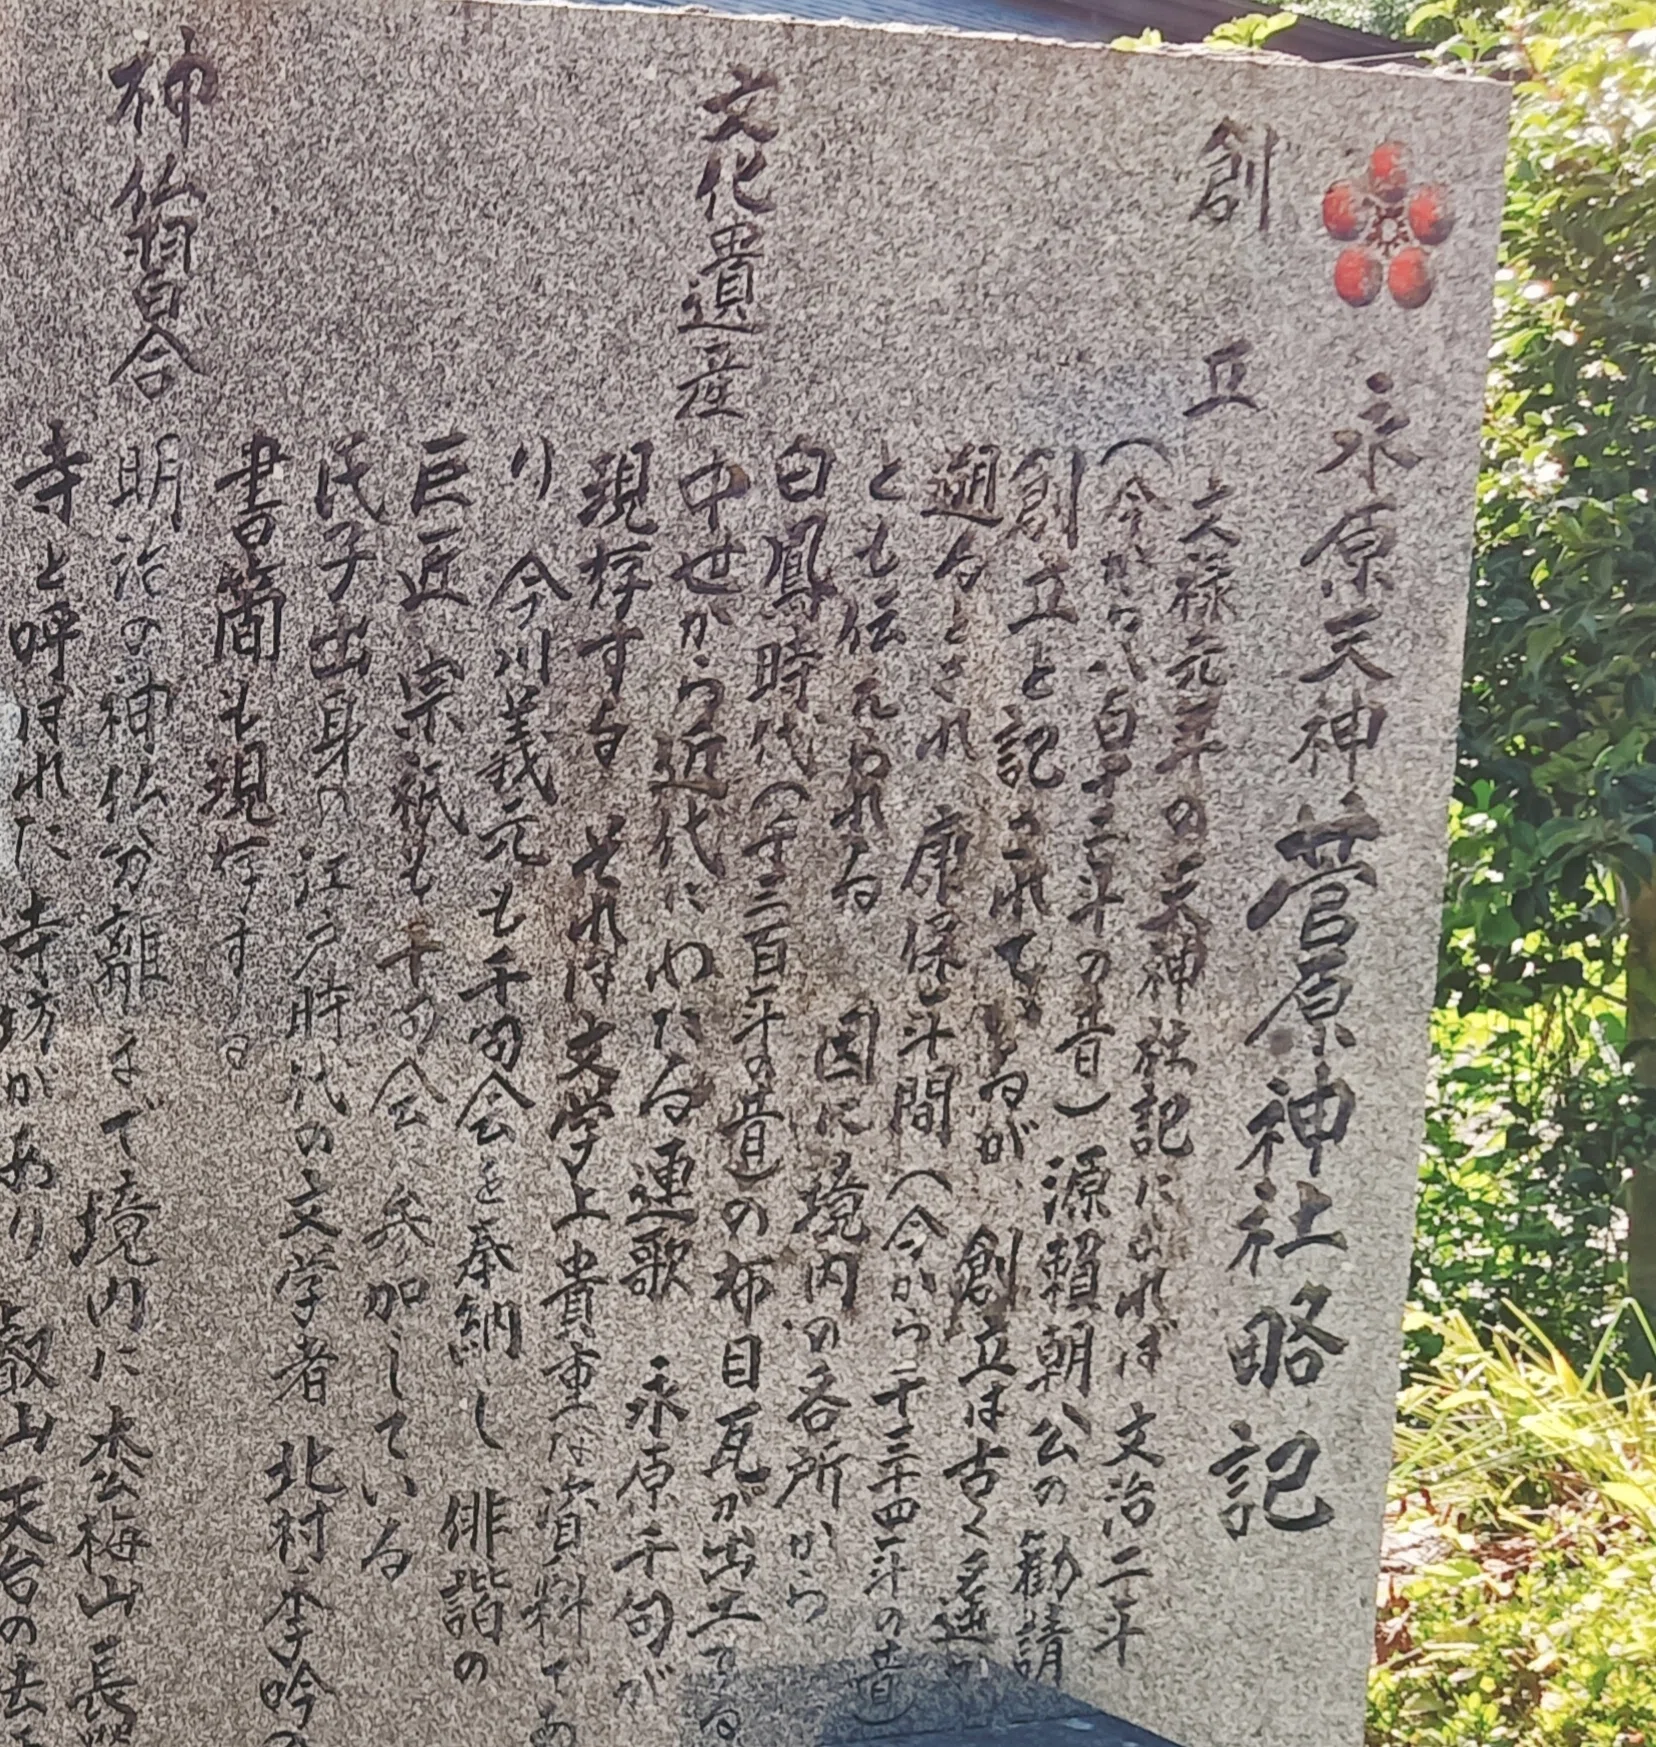 永原天神 菅原神社略記
創立 大禄元年の天神社記によれば 文治二年
(今から八百十三年の昔)源賴朝公の勧請
創立と記されているが、創立は古く多遡か
遡るとされ 康保年間(今から千三十四年の昔)
とも伝えられる 因に境内の各所から
白鳳時代(千三百年の昔)の布目瓦が出土てる
文化遺産 中せから近代にわたる連歌 永原千句が
現存する それは文学上貴重な資料であ
り 今川義元も千句会を奉納し 俳諧の
巨匠 宗祇も千句会に参加している
氏子出身の江戸時代の文学者 北村季吟の
書簡も現存する
神仏習合 明治の神仏分離まで境内に 太公梅山長
寺と呼ばれた寺坊があり 叡山天台の